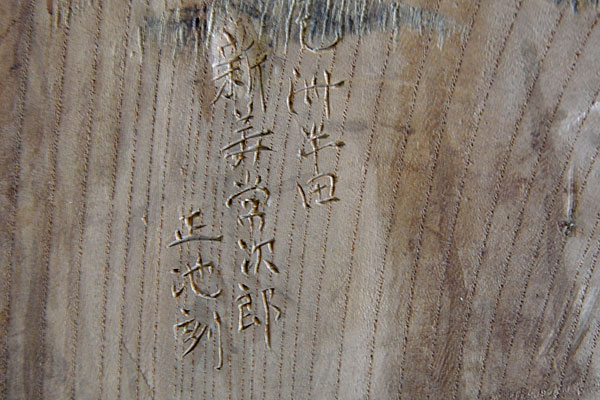 州半田
新美常次郎
正池刻